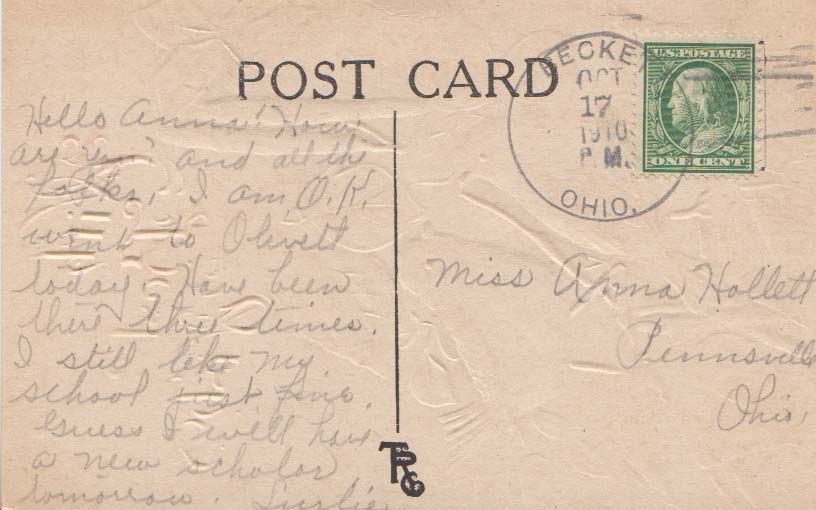 POST CARD
U.S. POSTAGE
ONE CENT
OCT
17
1910
P.M.
OHIO.
Hello Anna! How
are you? and all the
folks, I am O.K.
went to Olivett
today. Have been
there three times.
I still like my
school just fine.
Guess I will have
a new scholar
tomorrow.
Miss Anna Hollett
Pennsville
Ohio.